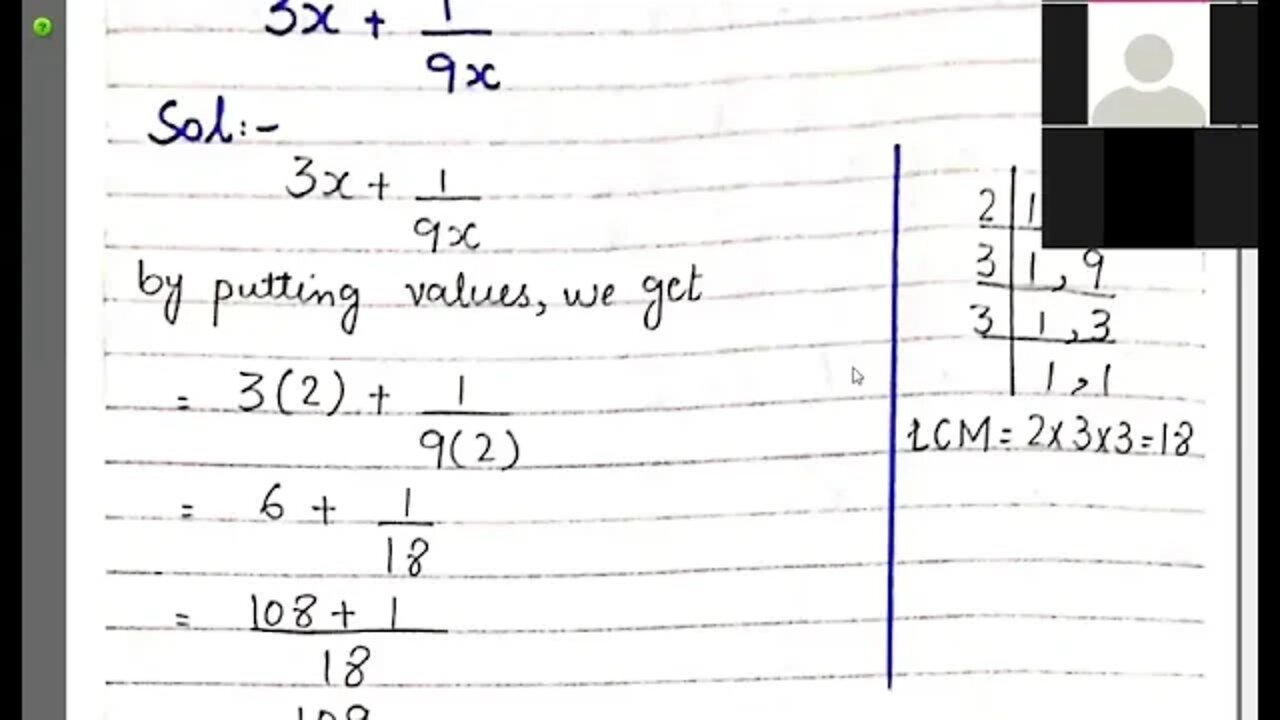 3x + 1/9x
Sol:-
3x + 1/9x
by putting values, we get
= 3(2) + 1/9(2)
= 6 + 1/18
= 108 + 1/18
109
2 | 1
3 | 1, 9
3 | 1, 3
1, 1
LCM = 2x3x3=18